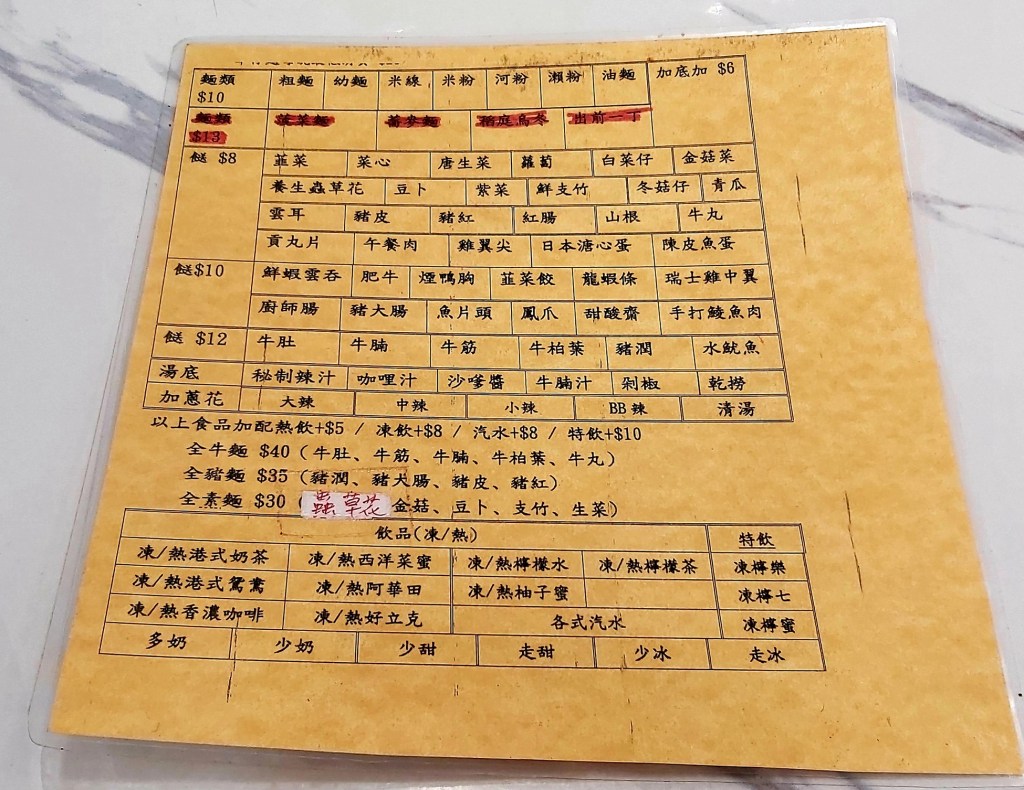 麵類 粗麵 幼麵 米線 米粉 河粉 瀨粉 油麵 加底加 $6
$10
麵類 菠菜麵 蕎麥麵 稻庭烏冬 出前一丁
$13
餸 $8 韮菜 菜心 唐生菜 蘿蔔 白菜仔 金菇菜
養生蟲草花 豆卜 紫菜 鮮支竹 冬菇仔 青瓜
雲耳 豬皮 豬紅 紅腸 山根 牛丸
貢丸片 午餐肉 雞翼尖 日本溏心蛋 陳皮魚蛋
餸$10 鮮蝦雲吞 肥牛 煙鴨胸 韮菜餃 龍蝦條 瑞士雞中翼
廚師腸 豬大腸 魚片頭 鳳爪 甜酸齋 手打鯪魚肉
餸 $12 牛肚 牛腩 牛筋 牛柏葉 豬潤 水魷魚
湯底 秘制辣汁 咖哩汁 沙嗲醬 牛腩汁 剁椒 乾撈
加蔥花 大辣 中辣 小辣 BB辣 清湯
以上食品加配熱飲+$5 / 凍飲+$8 / 汽水+$8 / 特飲+$10
全牛麵 $40 (牛肚、牛筋、牛腩、牛柏葉、牛丸)
全豬麵 $35 (豬潤、豬大腸、豬皮、豬紅)
全素麵 $30 (蟲草花 金菇、豆卜、支竹、生菜)
飲品(凍/熱) 特飲
凍/熱港式奶茶 凍/熱西洋菜蜜 凍/熱檸檬水 凍/熱檸檬茶 凍檸樂
凍/熱港式鴛鴦 凍/熱阿華田 凍/熱柚子蜜 凍檸七
凍/熱香濃咖啡 凍/熱好立克 各式汽水 凍檸蜜
多奶 少奶 少甜 走甜 少冰 走冰